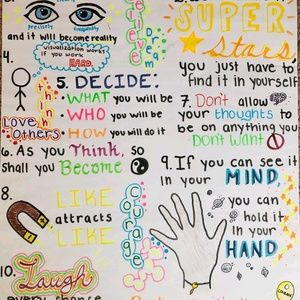 precisely
frequently
and it will become reality
visualization works
if you work
HARD.
Believe
in
them
SUPER
stars
you just have to
find it in yourself
4.
think
Love
Others
5. DECIDE.
• WHAT you will be
• WHO you will be
• HOW you will do it
6. As you Think, so
shall you Become
7. Don't allow
your thoughts to
be on anything you
Don't Want
8.
LIKE
attracts
LIKE
Courage
9. If you can see it
in your MIND
you can
hold it
in your
HAND
10.
Laugh
every chance